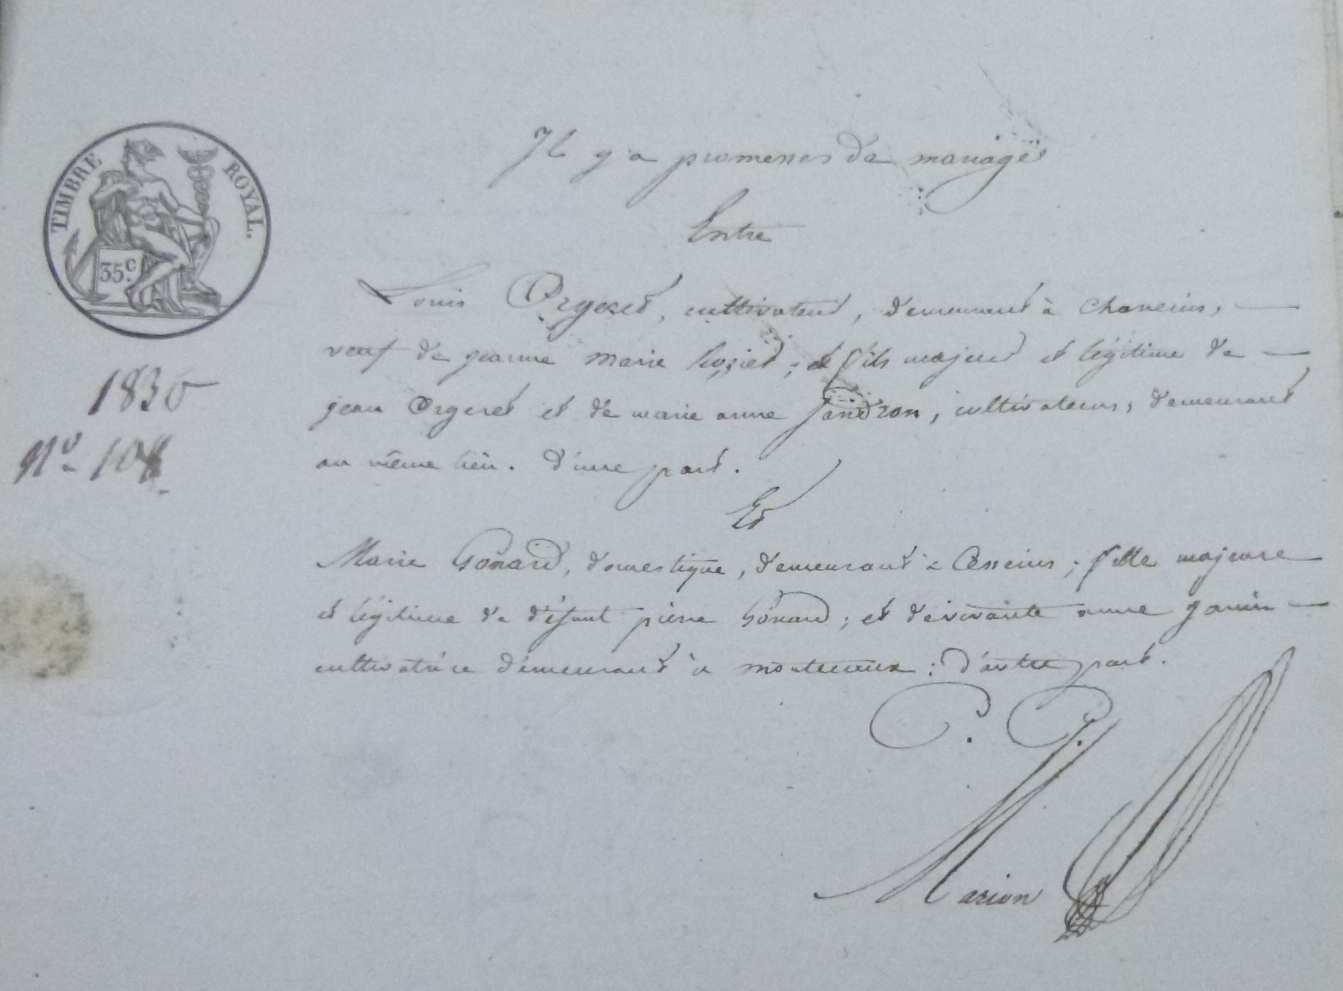 TIMBRE ROYAL.
35c.
1830
No 108
Il y a promesses de mariage
Entre
Louis Orgeret, cultivateur, demeurant à Chaneins,
veuf de jeanne marie ; et fils majeur et légitime de
jean Orgeret et de marie anne Jandron, cultivateurs, demeurant
au même lieu. d'une part.
Et
Marie Gonard, domestique, demeurant à Cesseins ; fille majeure
et légitime de défunt pierre Gonard ; et de vivante anne
cultivatrice demeurant à montceaux ; d'autre part.
Marion